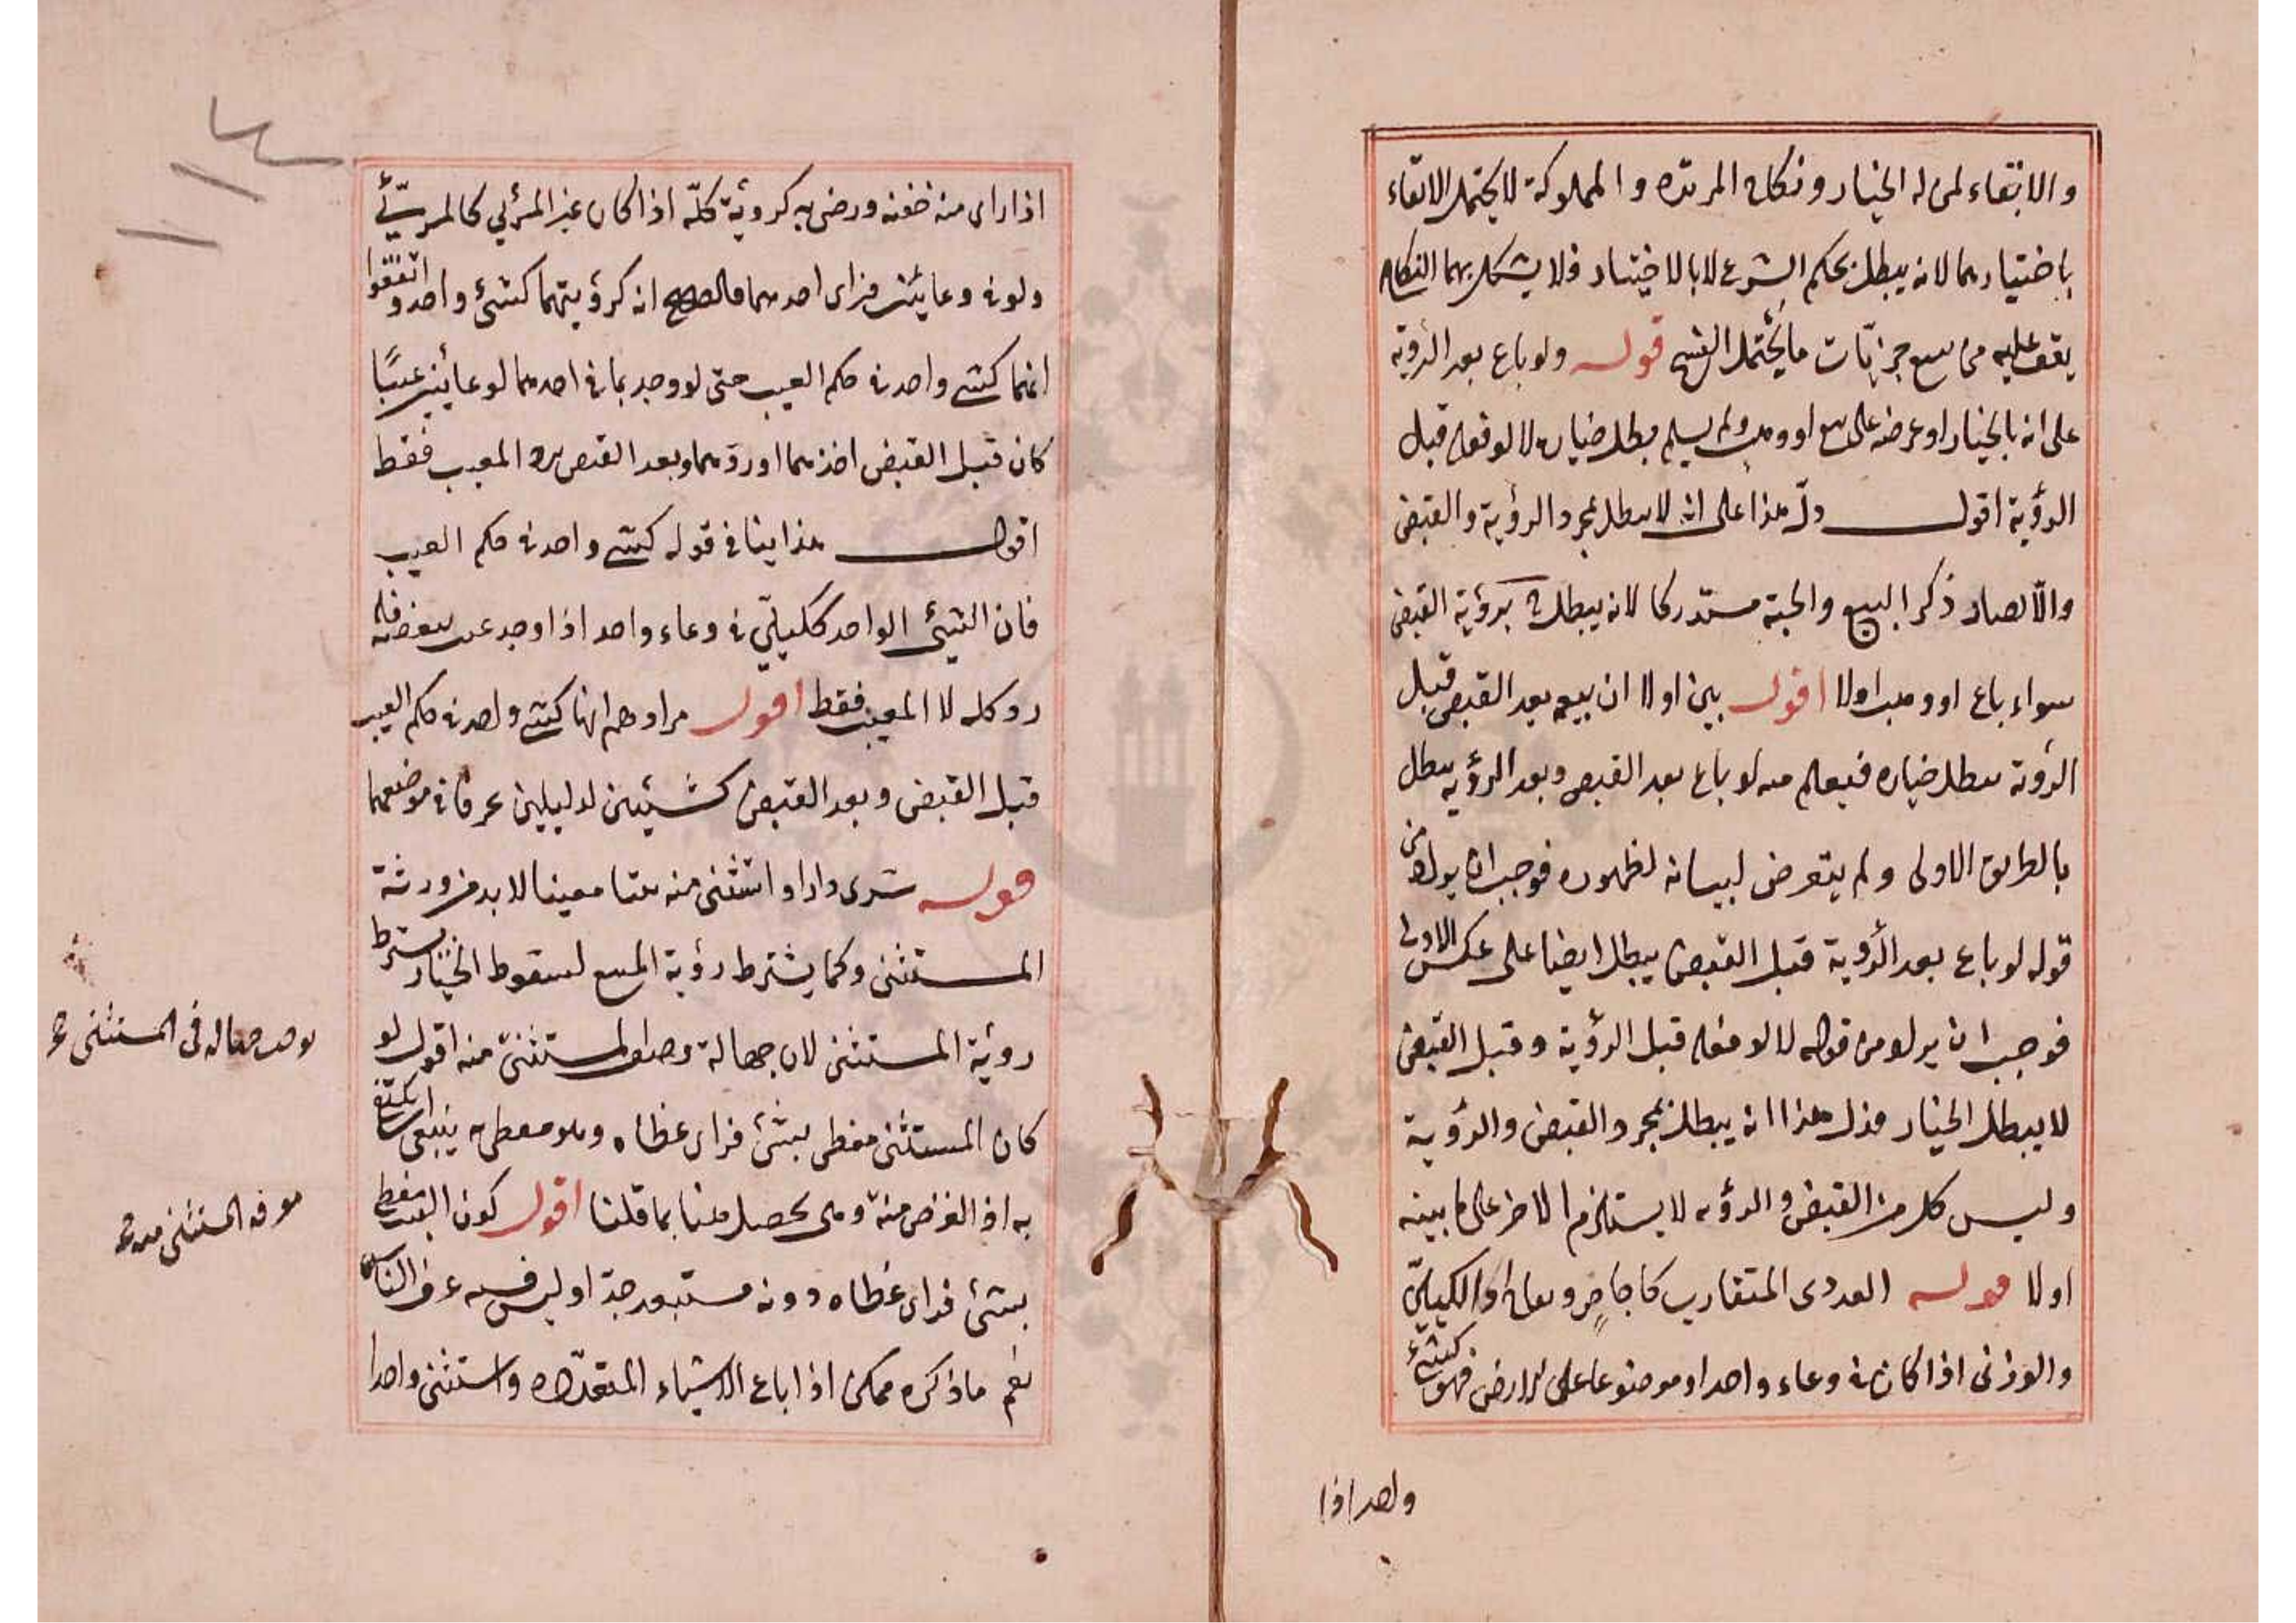 والابقاء لمن له الخيار ونكاح المرتده والمملوكة لا يحتمل الابقاء
باختيارهما لانه يبطل بحكم الشرع لا بالاختيار فلا يشكل بهما النكاح
يقف عليه من جزئيات ما يحتمل الفسخ قوله ولو باع بعد الرؤية
على انه بالخيار او عرضه على بيع او وهب ولم يسلم بطل خياره لا لو فعله قبل
الرؤية اقول دل هذا على انه لا يبطل بمجرد الرؤية والقبض
والا لصار ذكر البيع والهبة مستدركا لانه يبطل ح برؤية القبض
سواء باع او وهب اولا اقول بين اولا ان بيعه بعد القبض قبل
الرؤية يبطل خياره فيعلم منه لو باع بعد القبض وبعد الرؤية يبطل
بالطريق الاولى ولم يتعرض لبيانه لظهوره فوجب ان يراد من
قوله لو باع بعد الرؤية قبل القبض يبطل ايضا على عكس الاولى
فوجب ان يراد من قوله لا لو فعله قبل الرؤية وقبل القبض
لا يبطل الخيار فدل هذا انه يبطل بمجرد القبض والرؤية
وليس كل من القبض والرؤيه لا يستلزم الاخر على ما بينه
اولا قوله العددى المتقارب كاجاص ورمان او الكيليّ
والوزنى اذا كان فى وعاء واحد او موضوعا على الارض فهو كشئ
واحد اذا
اذا راى منه حفنه ورضى به كرؤية كلّه اذا كان غير المرئي كالمرئيّ
ولو فى وعائين فراى احدهما فالصحيح انه كرؤيتهما كشئ واحد واتفقوا
انهما كشئ واحد فى حكم العيب حتى لو وجد بما فى احدهما لو عائين عيبًا
كان قبل القبض اخذهما او ردّهما وبعد القبض يرد المعيب فقط
اقول هذا ينافى قوله كشئ واحد فى حكم العيب
فان الشئ الواحد ككيليّ فى وعاء واحد اذا وجد عيب ببعضه فله
رد كله لا المعيب فقط اقول مرادهم انها كشئ واحد فى حكم العيب
قبل القبض وبعد القبض كشيئين لدليلين عرفا فى موضعهما
قوله شرى دارا واستثنى منه بيتا معينا لا بد من رؤية
المستثنى وكما يشترط رؤية المبيع لسقوط الخيار يشترط
رؤية المستثنى لان جهالة وصف المستثنى منه اقول لو
كان المستثنى مغطى بشئ فراى غطاه وهو مغطى به ينبغى ان يكتفى
به اذ الغرض منه وهى يحصل هنا بما قلنا اقول كون البيت مغطى
بشئ فراى غطاه دونه مستبعد جدّا وليس فيه عرف الناس
نعم ما ذكره ممكن اذا باع الاشياء المتعدّده واستثنى واحدا
يوجب جهالة فى المستثنى صح
معرفة المستثنى منه صح